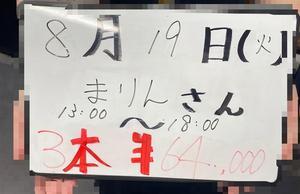 8月19日(火)
まりんさん
13:00〜18:00
3本 ¥64.,000